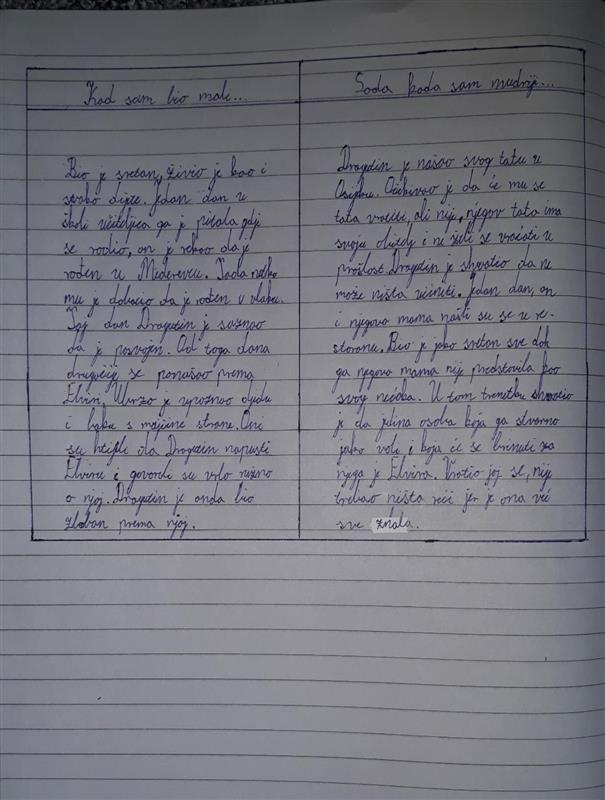 Kad sam bio mali...
Bio je sretan, živio je kao i
svako dijete. Jedan dan u
školi učiteljica ga je pitala gdje
se rodio, on je rekao da je
rođen u Međerevcu. Tada netko
mu je dobacio da je rođen u vlaku.
Taj dan Dragutin je saznao
da je posvojen. Od toga dana
drugačije se ponašao prema
Elviri. Ubrzo je upoznao djeda
i baku s majčine strane. Oni
su htjeli da Dragutin napusti
Elviru i govorili su vrlo ružno
o njoj. Dragutin je onda bio
zloban prema njoj.
Sada kada sam mudriji...
Dragutin je našao svog tatu u
Osijeku. Očekivao je da će mu se
tata vratiti, ali nije, njegov tata ima
svoju obitelj i ne želi se vraćati u
prošlost. Dragutin je shvatio da ne
može ništa učiniti. Jedan dan, on
i njegova mama našli su se u re-
storanu. Bio je jako sretan sve dok
ga njegova mama nije predstavila kao
svog nećaka. U tom trenutku shvatio
je da jedina osoba koja ga stvarno
jako voli i koja će se brinuti za
njega je Elvira. Vratio joj se, nije
trebao ništa reći jer je ona već
sve znala.